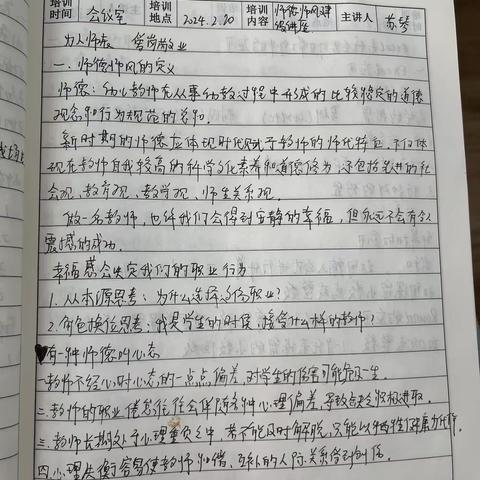 培训时间 会议室 培训地点 2024.2.20 培训内容 师德师风建设讲座 主讲人 苏琴
为人师表 爱岗敬业
一、师德师风的定义
师德：幼儿教师在从事幼教过程中形成的比较稳定的道德
观念和行为规范的总和。
新时期的师德应体现时代赋予教师的师代特征，不仅体
现在教师自我较高的科学文化素养和道德修为；还包括先进的社
会观、教育观、教学观、师生关系观。
做一名教师，也许我们会得到宁静的幸福，但永远不会有令人
震撼的成功。
幸福感会决定我们的职业行为
1.从本源思考：为什么选择这份职业？
2.角色换位思考：我是学生的时候，接受什么样的教师？
有一种师德叫心态
一教师不经心时心态的一点点偏差，对学生的伤害可能危及一生
二.教师的职业倦怠往往会伴随各种心理偏差，导致自己无法积极进取。
三.教师长期处于心理重负之中，若不能及时解脱，只能以牺牲健康为代价。
四.心理失衡容易使教师和谐、互补的人际关系得到